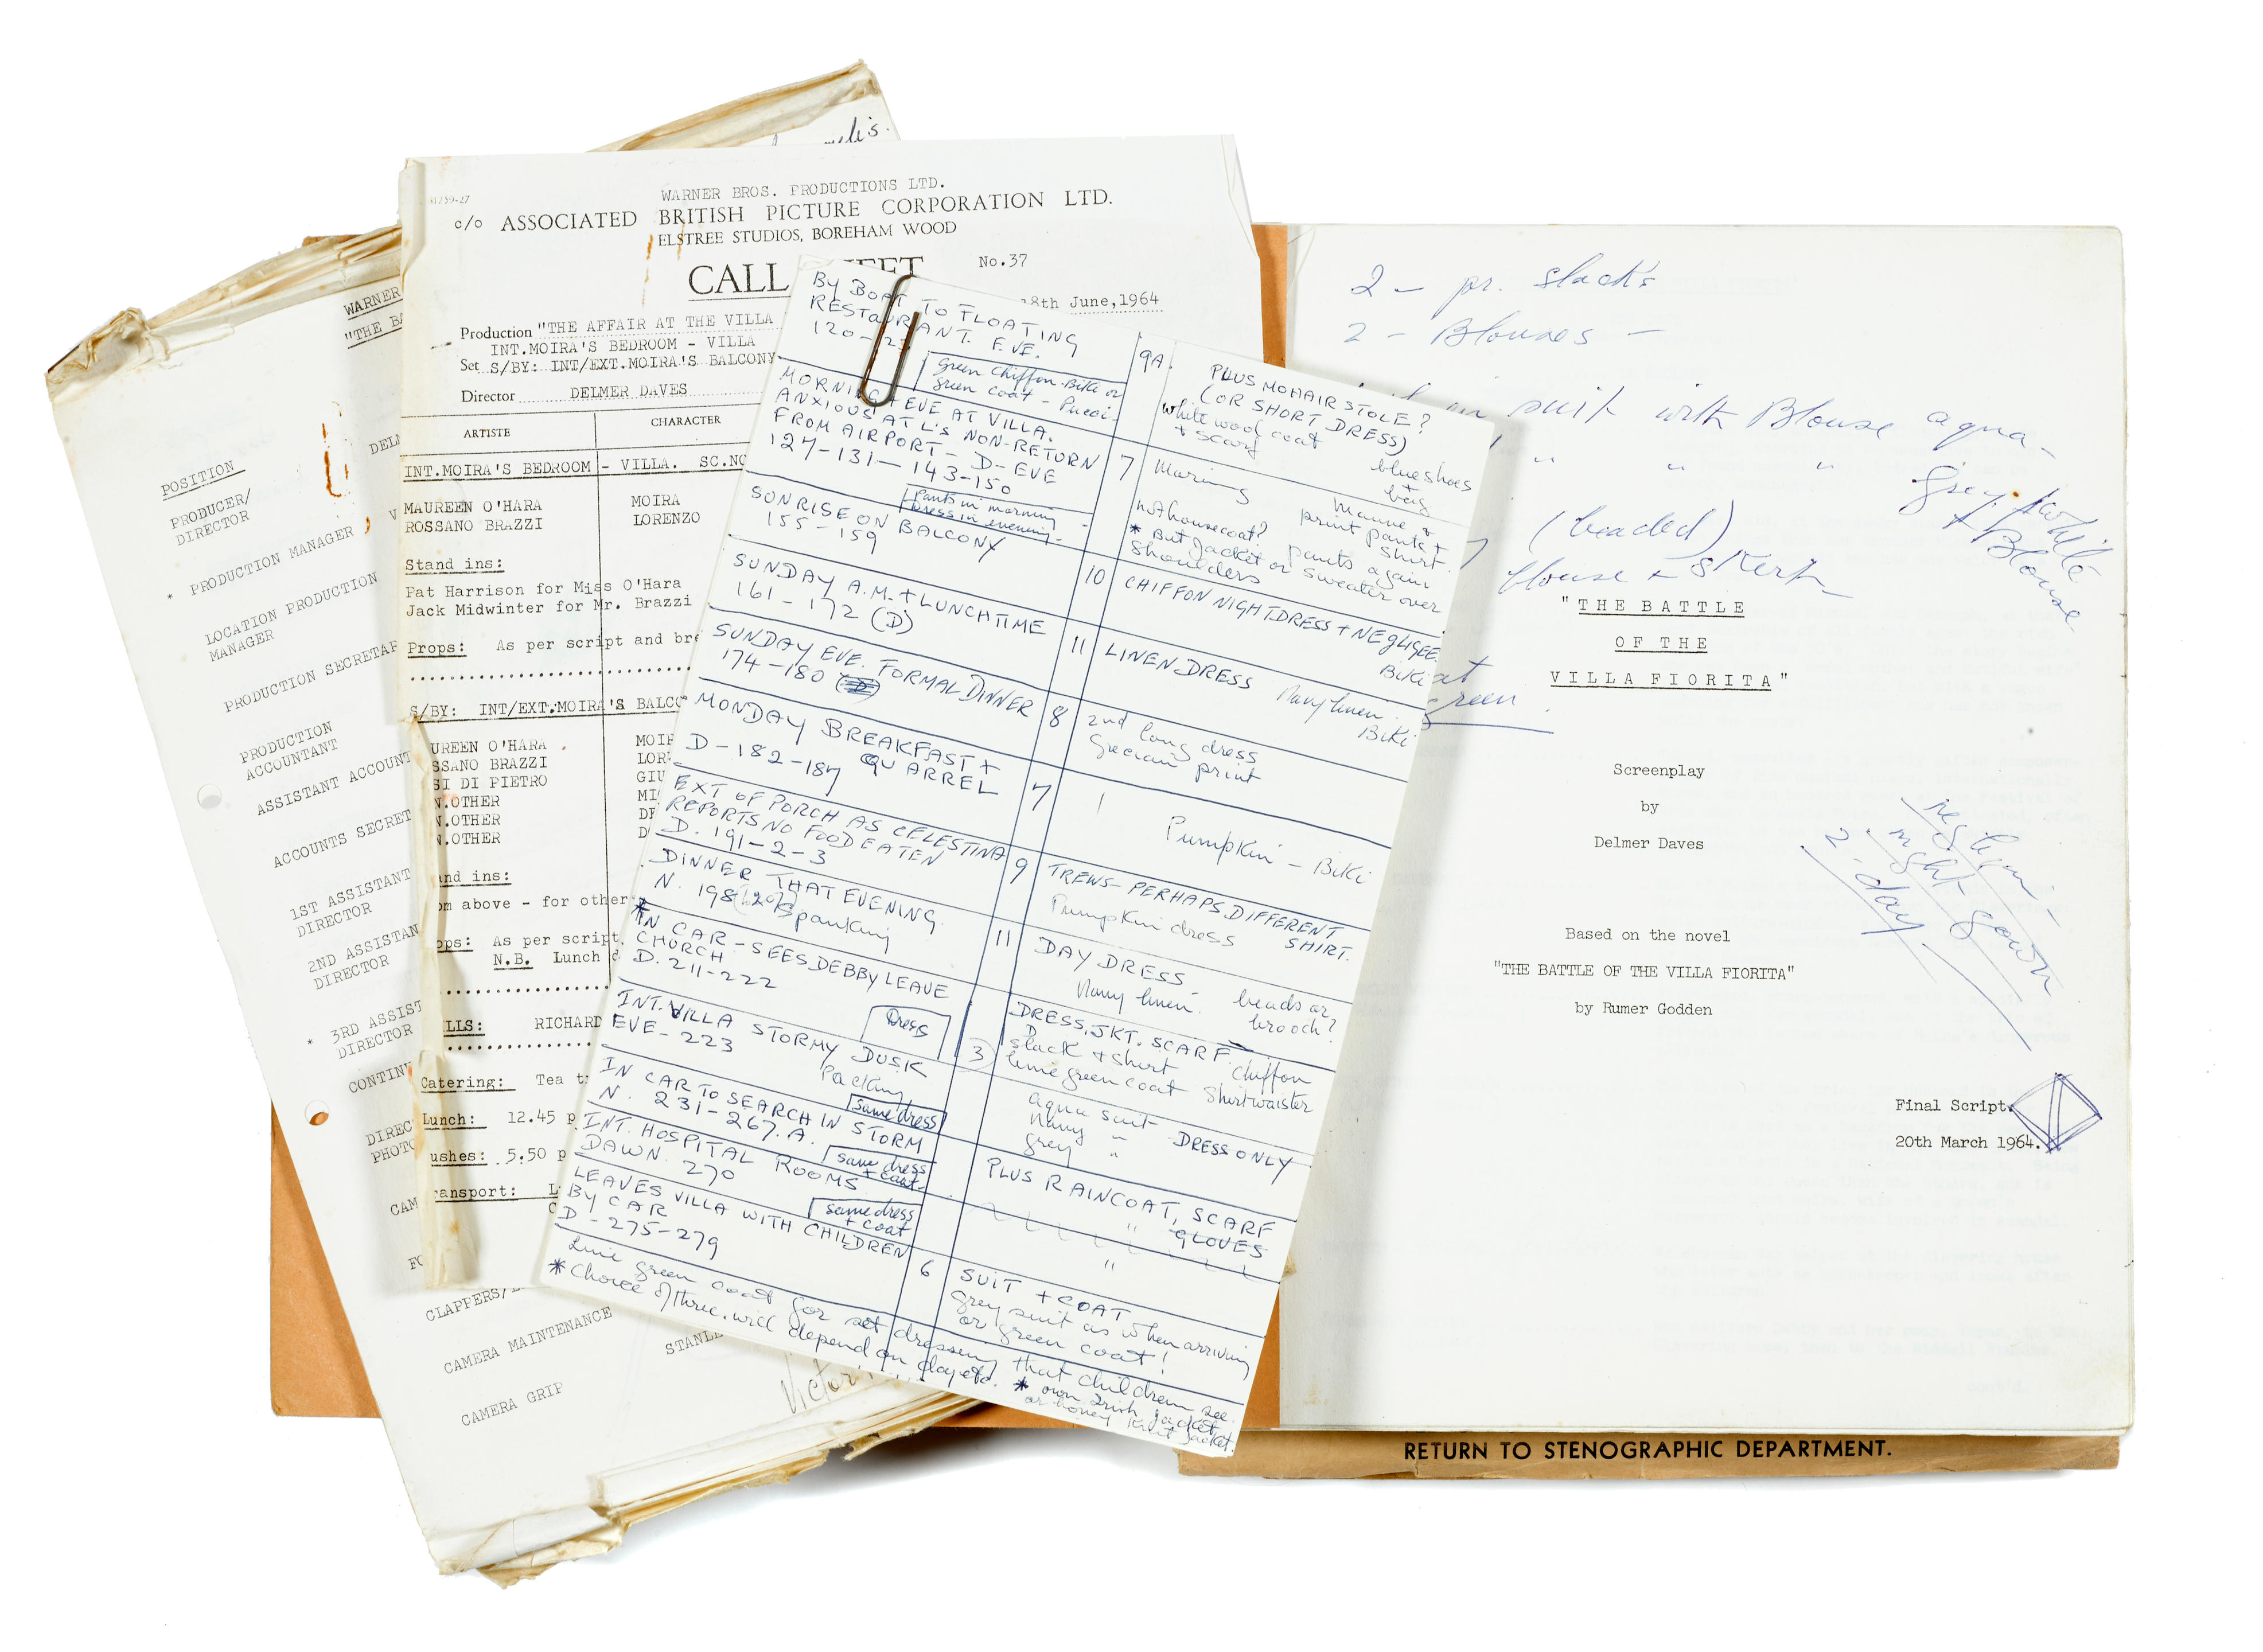 WARNER
"THE BA
DELM
POSITION
PRODUCER/
DIRECTOR
* PRODUCTION MANAGER
LOCATION PRODUCTION
MANAGER
PRODUCTION SECRETAR
PRODUCTION
ACCOUNTANT
ASSISTANT ACCOUNT
ACCOUNTS SECRET
1ST ASSISTANT
DIRECTOR
2ND ASSISTAN
DIRECTOR
* 3RD ASSIST
DIRECTOR
CONTIN
DIREC
PHOTO
CAM
FO
CLAPPERS/
CAMERA MAINTENANCE
STANLE
CAMERA GRIP
Victor
WARNER BROS. PRODUCTIONS LTD.
c/o ASSOCIATED BRITISH PICTURE CORPORATION LTD.
ELSTREE STUDIOS, BOREHAM WOOD
CALL SHEET No.37
8th June, 1964
Production "THE AFFAIR AT THE VILLA
INT.MOIRA'S BEDROOM - VILLA
Set S/BY: INT/EXT.MOIRA'S BALCONY
Director DELMER DAVES
ARTISTE CHARACTER
INT.MOIRA'S BEDROOM - VILLA. SC.NO
MAUREEN O'HARA MOIRA
ROSSANO BRAZZI LORENZO
Stand ins:
Pat Harrison for Miss O'Hara
Jack Midwinter for Mr. Brazzi
Props: As per script and bre
S/BY: INT/EXT.MOIRA'S BALCO
UREEN O'HARA MOIR
SSANO BRAZZI LOR
SI DI PIETRO GIU
N.OTHER MI
N.OTHER DE
N.OTHER D
and ins:
om above - for other
ops: As per script.
N.B. Lunch
LLS: RICHARD
Catering: Tea t
Lunch: 12.45 p
ushes: 5.50 p
ansport: L
BY BOAT TO FLOATING
RESTAURANT. EVE.
120-123
Green Chiffon-Biki or
green coat - Pucci.
9A.
PLUS MOHAIR STOLE?
(OR SHORT DRESS)
white wool coat
+ scarf
blue shoes
+
bag
MORNING + EVE AT VILLA.
ANXIOUS AT L'S NON-RETURN
FROM AIRPORT - D-EVE
127-131-143-150
Pants in morning
Dress in evening.
7
Mauve &
print pants +
shirt.
SUNRISE ON BALCONY
155-159
not housecoat? pants again
* But jacket or sweater over
shoulders
10
CHIFFON NIGHTDRESS + NEGLIGEE.
Biki
SUNDAY A.M. + LUNCHTIME
161-172 (D)
11
LINEN DRESS Navy linen.
Biki
SUNDAY EVE. FORMAL DINNER
174-180
8
2nd long dress
Grecian print
MONDAY BREAKFAST +
QUARREL
D-182-187
7
Pumpkin - Biki
EXT OF PORCH AS CELESTINA
REPORTS NO FOOD EATEN
D. 191-2-3
9
TREWS - PERHAPS DIFFERENT
SHIRT.
Pumpkin dress
DINNER THAT EVENING.
N. 198 Spanking
11
DAY DRESS -
Navy linen. beads or
brooch?
*IN CAR - SEES DEBBY LEAVE
CHURCH
D. 211-222
Dress
3
DRESS, JKT. SCARF. chiffon
slack + shirt
lime green coat shirtwaister
INT. VILLA STORMY DUSK
EVE - 223
Packing
same dress
aqua suit - DRESS ONLY
Navy "
grey "
IN CAR TO SEARCH IN STORM
N. 231-267.A.
same dress
+ coat
PLUS RAINCOAT, SCARF
GLOVES
INT. HOSPITAL ROOMS
DAWN. 270
same dress
+ coat
"
LEAVES VILLA WITH CHILDREN
BY CAR
D-275-279
6
SUIT + COAT
grey suit as when arriving
or green coat!
Lime green coat for set dressing that children see.
* Choice of three. will depend on day etc. * own Irish jacket
or honey knit jacket.
2 - pr. slacks
2 - Blouses -
suit with Blouse aqua-
" " "
grey. + white
+ Blouse
(beaded)
blouse + skirt
green.
"THE BATTLE
OF THE
VILLA FIORITA"
Screenplay
by
Delmer Daves
neglegi-
night gown
2 - day
Based on the novel
"THE BATTLE OF THE VILLA FIORITA"
by Rumer Godden
Final Script.
20th March 1964.
RETURN TO STENOGRAPHIC DEPARTMENT.